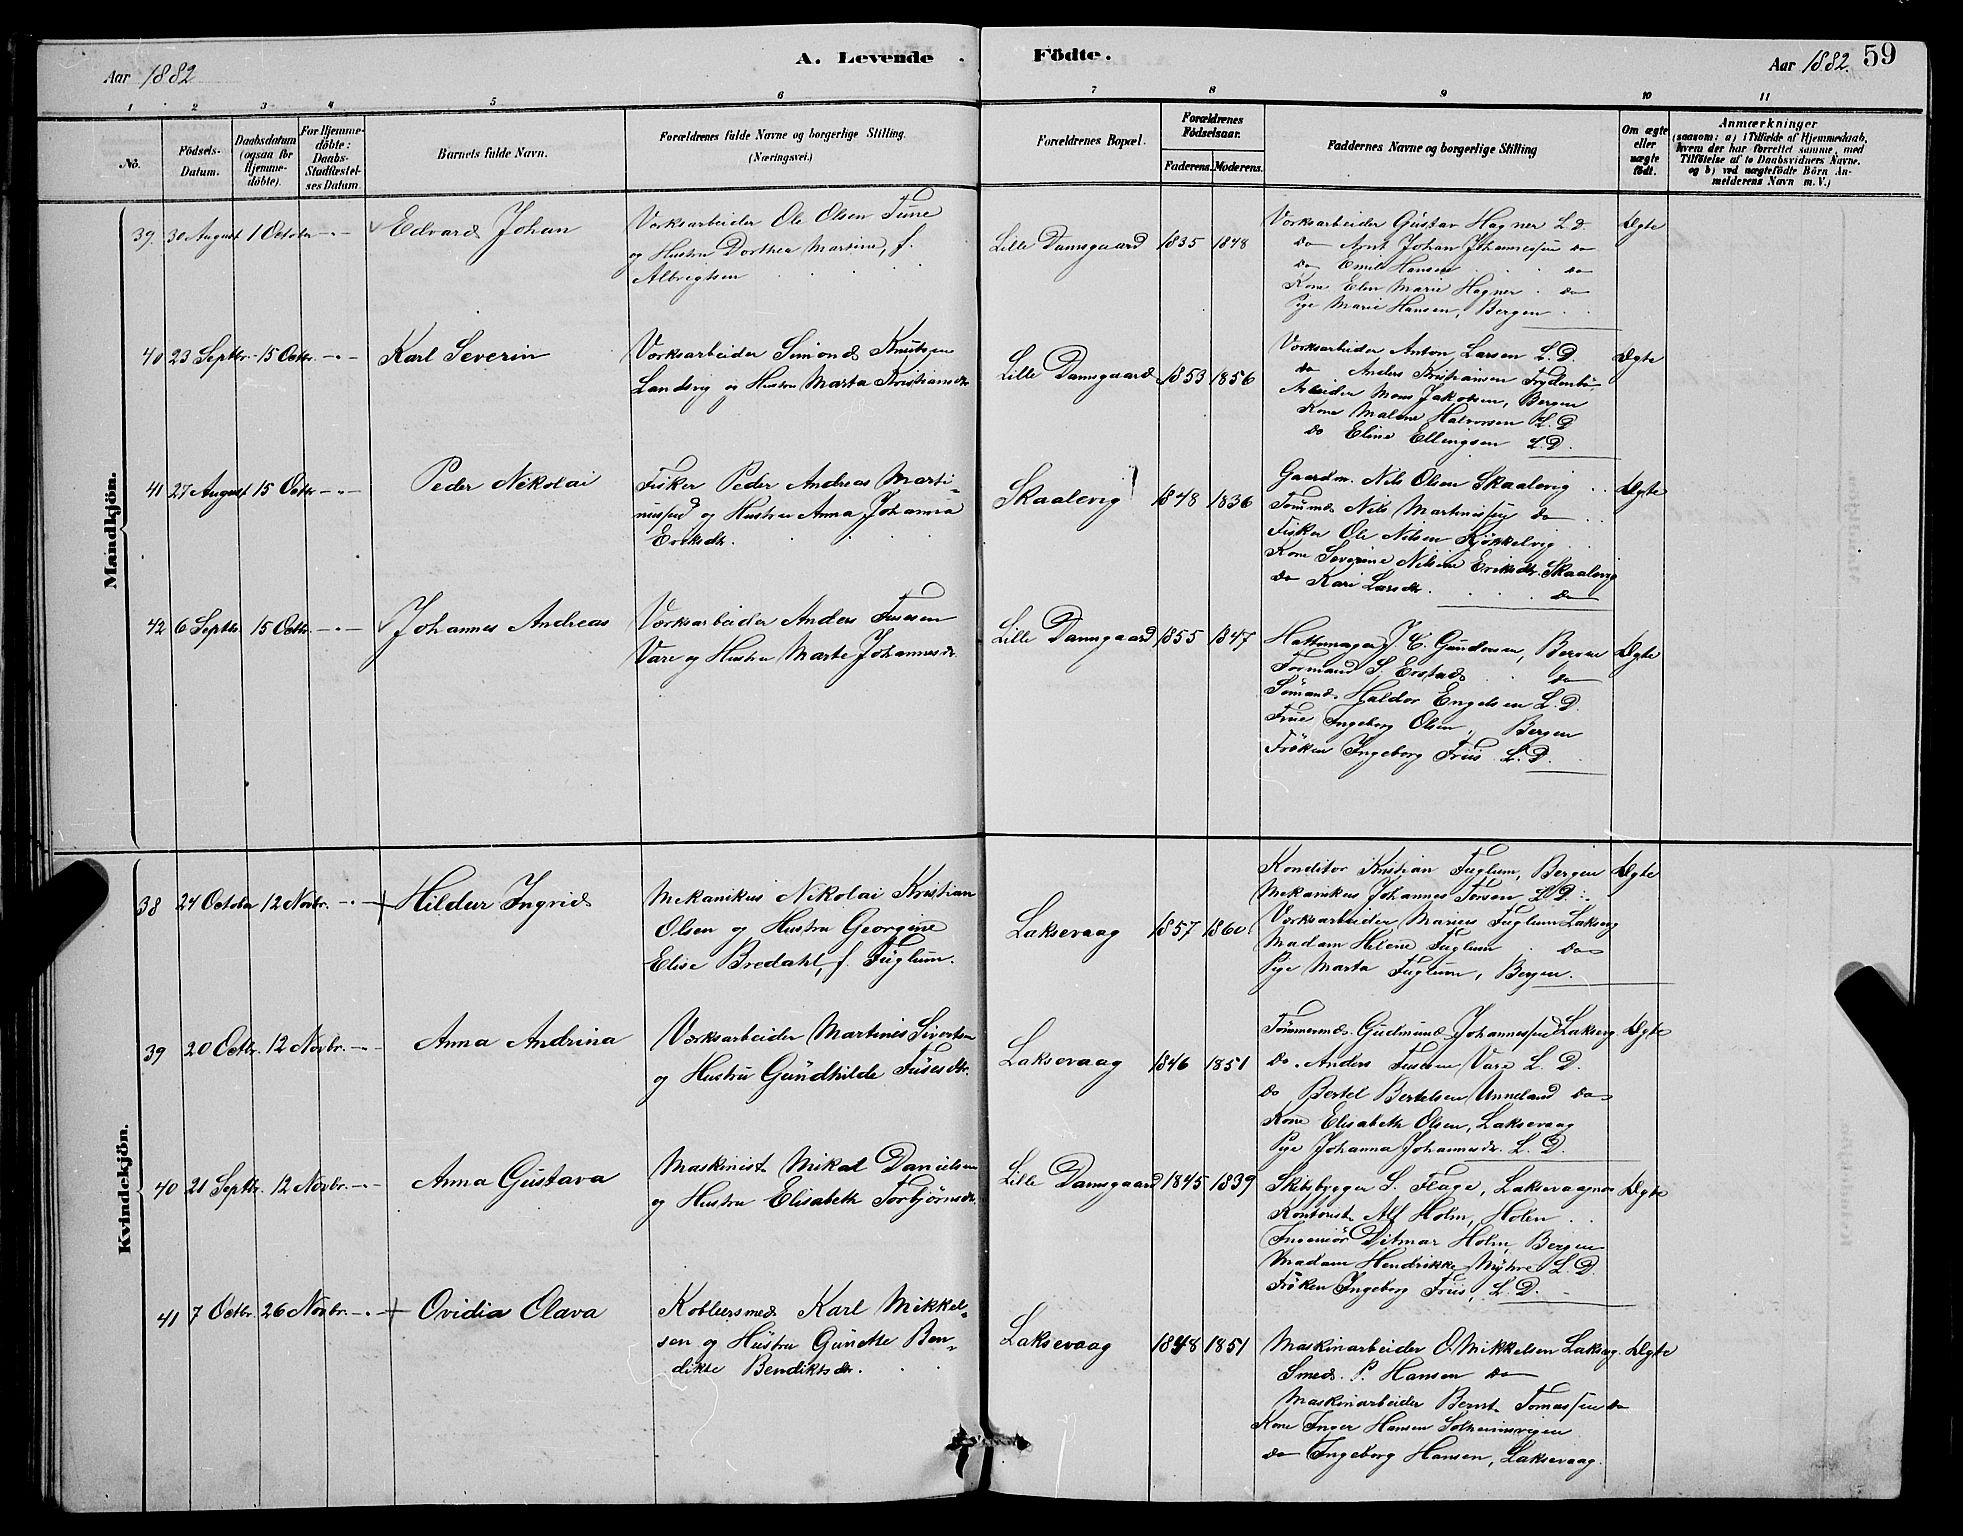 Aar 1882
A. Levende Födte.
Aar 1882. 59
1 2 3 4 5 6 7 8 9 10 11
No.
Födsels-Datum.
Daabsdatum (ogsaa for Hjemme-döbte).
For Hjemme-döbte: Daabs-Stadfæstel-ses Datum.
Barnets fulde Navn.
Forældrenes fulde Navne og borgerlige Stilling. (Næringsvei.)
Forældrenes Bopæl.
Forældrenes Födselsaar.
Faderens. Moderens.
Faddernes Navne og borgerlige Stilling
Om ægte eller uægte födt.
Anmærkninger
(saasom: a) i Tilfælde af Hjemmedaab, hvem der har forrettet samme, med Tilföielse af to Daabsvidners Navne. og b) ved uægtefödte Börn An-melderens Navn m. V.)
Mandkjön.
39. 30 August 1 October Edvard Johan
Værksarbeider Ole Olsen Tune
og Hustru Dorthea Martine, f.
Albregtsen
Lille Damsgaard 1835 1848
Værksarbeider Gustav Hagner L D.
do Arnt Johan Johannessen do
do Emil Hansen do
Kone Elen Marie Hagner do
Pige Marie Hansen, Bergen
Ægte
40 23 Septbr. 15 Octbr. Karl Severin
Værksarbeider Simond Knutsen
Landsvig og Hustru Marta Kristiansdr
Lille Damsgaard 1853 1856
Værksarbeider Anton Larsen L.D.
do Anders Kristiansen Frydenbö
Arbeider Mons Jakobsen, Bergen
Kone Malene Halvorsen L.D
do Eline Ellingsen L.D.
Ægte
41 27 August 15 Octbr Peder Nikolai
Fisker Peder Andreas Marti-
nussen og Hustru Anna Johanna
Eriksdr.
Skaalevig 1848 1836
Gaardm. Nils Olsen Skaalevig
Tömmerm. Nils Martinussen do
Fisker Ole Nilsen Kjökkelvig
Kone Severine Nilsine Eriksdr. Skaalevig
do Kari Larsdr. do
Ægte
42 6 Septbr. 15 Octbr. Johannes Andreas
Værksarbeider Anders Fusesen
Vare og Hustru Marte Johannesdr.
Lille Damsgaard 1855 1847
Hattemager J. C. Gundersen, Bergen
Formand S. Erstad do
Sömand Haldor Engelsen L.D.
Frue Ingeborg Olsen, Bergen
Fröken Ingeborg Friis L.D.
Ægte
Kvindekjön.
38 24 October 12 Novbr. Hildur Ingrid
Mekanikus Nikolai Kristian
Olsen og Hustru Georgine
Elise Bredahl, f. Fuglum.
Laksevaag 1857 1860
Konditor Kristian Fuglum, Bergen
Mekanikus Johannes Torsen L.D.
Værksarbeider Marius Fuglum Laksevg
Madam Helene Fuglum do
Pige Marta Fuglum, Bergen.
Ægte
39 20 Octbr. 12 Novbr. Anna Andrina
Værksarbeider Martines Sivertsen
og Hustru Gundhilde Fusesdr.
Laksevaag 1846 1851
Tömmermd. Gudmund Johannessen Laksevg
do. Anders Fusesen Vare L.D.
do Bertel Bertelsen Unneland do
Kone Elisabeth Olsen, Laksevaag
Pige Johanna Johannesdr. L.D.
Ægte
40 21 Septbr. 12 Novbr. Anna Gustava
Maskinist Mikal Danielsen
og Hustru Elisabeth Torbjörnsdr.
Lille Damsgaard 1845 1839
Skibsbygger S. Flage, Laksevaagnes
Kontorist Alf Holm, Holen
Ingeniör Ditmar Holm, Bergen
Madam Hendrikke Myhre L.D.
Fröken Ingeborg Friis, L.D.
Ægte
41 7 Octbr. 26 Novbr. Ovidia Olava
Kobbersmed Karl Mikkel-
sen og Hustru Gunette Ben-
dikte Bendiktsdr.
Laksevaag 1848 1851
Maskinarbeider O. Mikkelsen Laksvg.
Smed P. Hansen do
Maskinarbeider Bernt Tomassen do
Kone Inger Hansen Solheimsvigen
do Ingeborg Hansen, Laksevaag.
Ægte